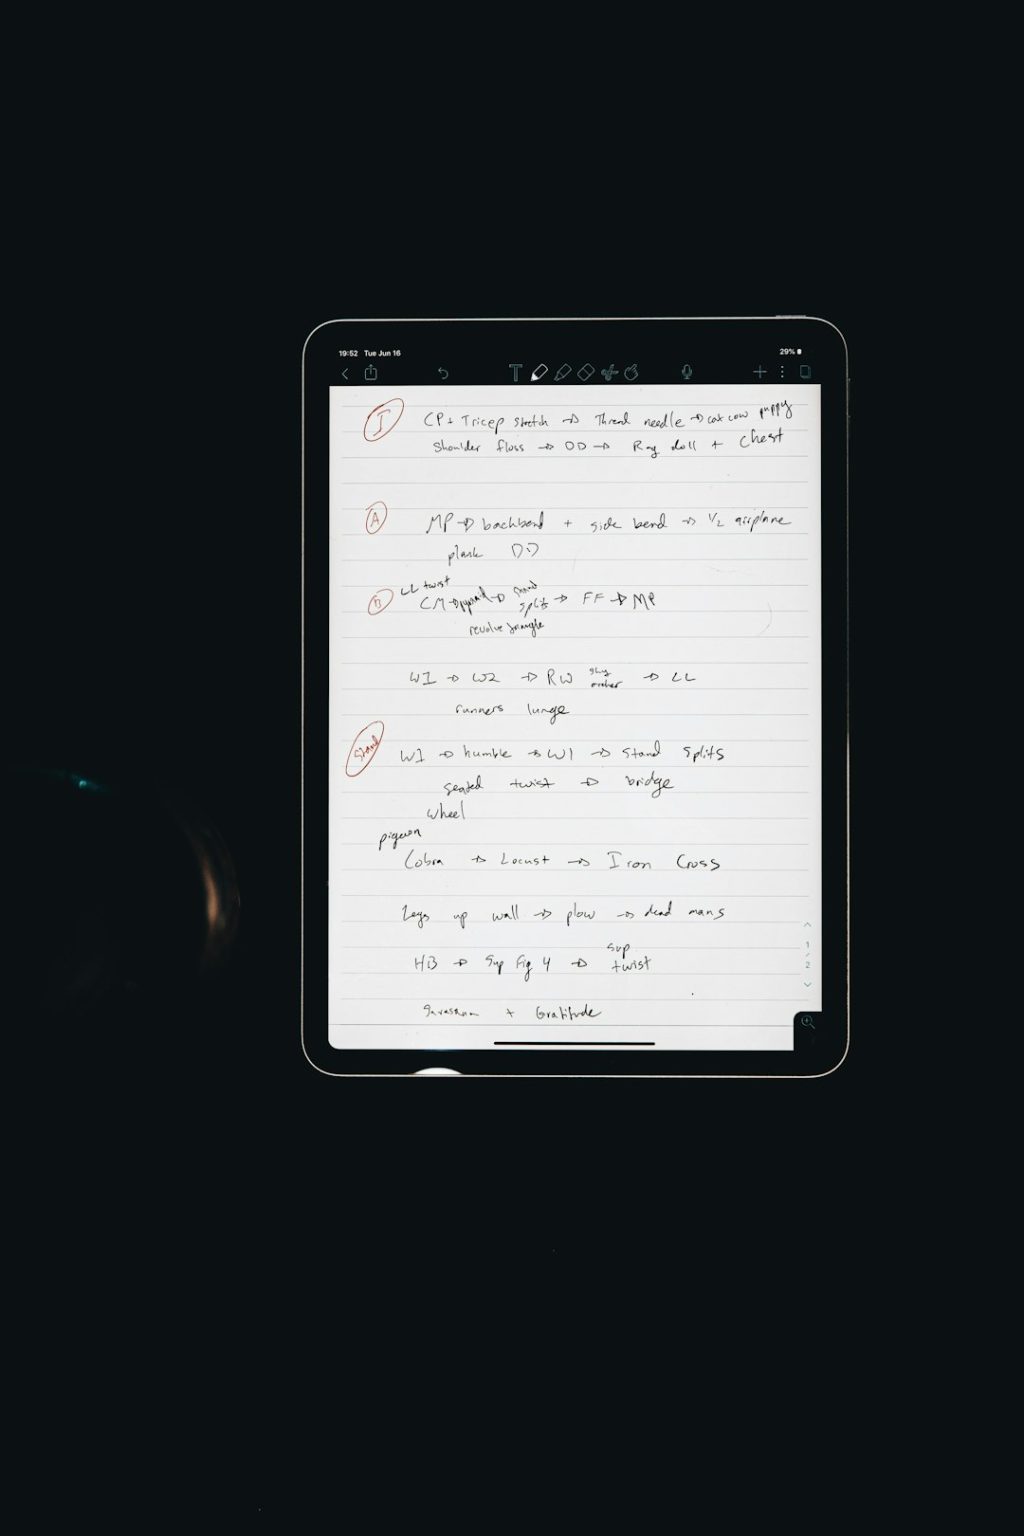 19:52 Tue Jun 16
29%
T
I CP + Tricep stretch → Thread needle → cat cow puppy
Shoulder floss → DD → Rag doll + Chest
A MP → backbend + side bend → 1/2 airplane
plank DD
LL twist
B CM → pyramid → stand splits → FF → MP
revolve triangle
W1 → W2 → RW sky archer → LL
runners lunge
Stand W1 → humble → W1 → stand splits
seated twist → bridge
wheel
pigeon
Cobra → Locust → Iron Cross
Legs up wall → plow → dead mans
HB → Sup Fig 4 → sup twist
Savasana + Gratitude
1
2